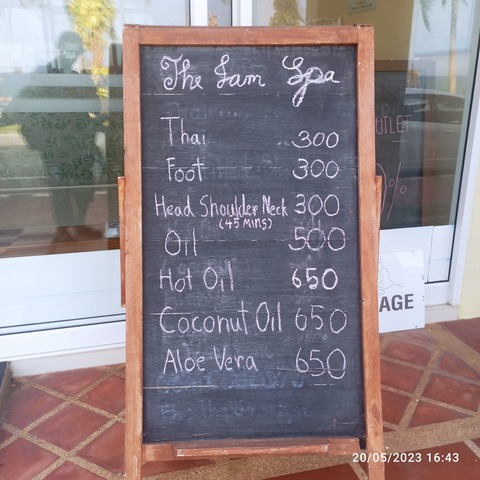 The Jam Spa
Thai 300
Foot 300
Head Shoulder Neck 300
(45 mins)
Oil 500
Hot Oil 650
Coconut Oil 650
Aloe Vera 650
OUTLET
%
AGE
20/05/2023 16:43